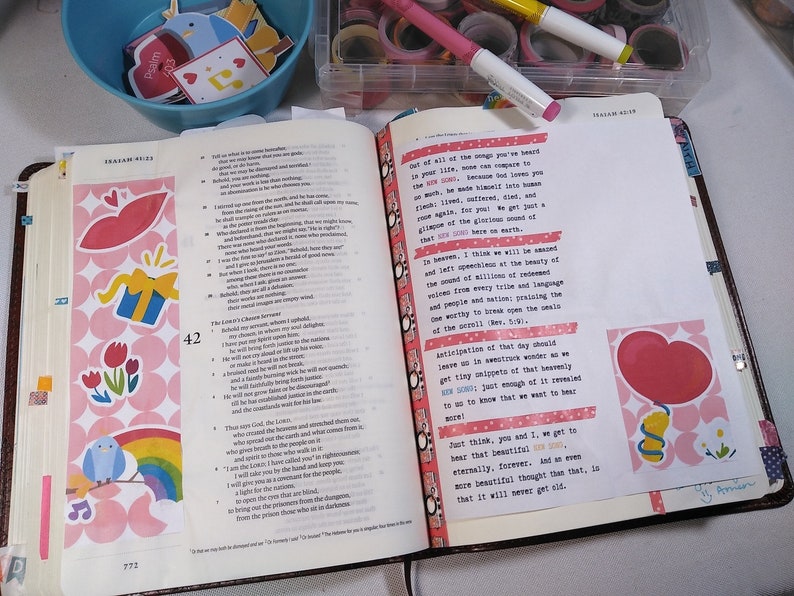 Psalm
103
ISAIAH 41:23
ISAIAH 42:19
23 Tell us what is to come hereafter,
that we may know that you are gods;
do good, or do harm,
that we may be dismayed and terrified.¹
24 Behold, you are nothing,
and your work is less than nothing;
an abomination is he who chooses you.
25 I stirred up one from the north, and he has come,
from the rising of the sun, and he shall call upon my name;
he shall trample on rulers as on mortar,
as the potter treads clay.
26 Who declared it from the beginning, that we might know,
and beforehand, that we might say, "He is right"?
There was none who declared it, none who proclaimed,
none who heard your words.
27 I was the first to say² to Zion, "Behold, here they are!"
and I give to Jerusalem a herald of good news.
28 But when I look, there is no one;
among these there is no counselor
who, when I ask, gives an answer.
29 Behold, they are all a delusion;
their works are nothing;
their metal images are empty wind.
The LORD's Chosen Servant
42
1 Behold my servant, whom I uphold,
my chosen, in whom my soul delights;
I have put my Spirit upon him;
he will bring forth justice to the nations.
2 He will not cry aloud or lift up his voice,
or make it heard in the street;
3 a bruised reed he will not break,
and a faintly burning wick he will not quench;
he will faithfully bring forth justice.
4 He will not grow faint or be discouraged³
till he has established justice in the earth;
and the coastlands wait for his law.
5 Thus says God, the LORD,
who created the heavens and stretched them out,
who spread out the earth and what comes from it,
who gives breath to the people on it
and spirit to those who walk in it:
6 "I am the LORD; I have called you⁴ in righteousness;
I will take you by the hand and keep you;
I will give you as a covenant for the people,
a light for the nations,
7 to open the eyes that are blind,
to bring out the prisoners from the dungeon,
from the prison those who sit in darkness.
¹ Or that we may both be dismayed and see ² Or Formerly I said ³ Or bruised ⁴ The Hebrew for you is singular; four times in this verse
772
D
Out of all of the songs you've heard
in your life, none can compare to
the NEW SONG. Because God loves you
so much, he made himself into human
flesh; lived, suffered, died, and
rose again, for you! We get just a
glimpse of the glorious sound of
that NEW SONG here on earth.
In heaven, I think we will be amazed
and left speechless at the beauty of
the sound of millions of redeemed
voices from every tribe and language
and people and nation; praising the
One worthy to break open the seals
of the scroll (Rev. 5:9).
Anticipation of that day should
leave us in awestruck wonder as we
get tiny snippets of that heavenly
NEW SONG; just enough of it revealed
to us to know that we want to hear
more!
Just think, you and I, we get to
hear that beautiful NEW SONG,
eternally, forever. And an even
more beautiful thought than that, is
that it will never get old.